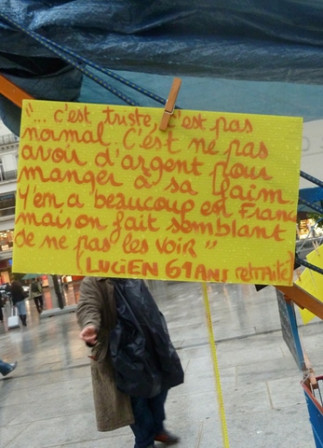 "... c'est triste, c'est pas
normal. C'est ne pas
avoir d'argent pour
manger à sa faim.
Y'en a beaucoup en France
mais on fait semblant
de ne pas les voir"
(LUCIEN 61 ANS retraité)